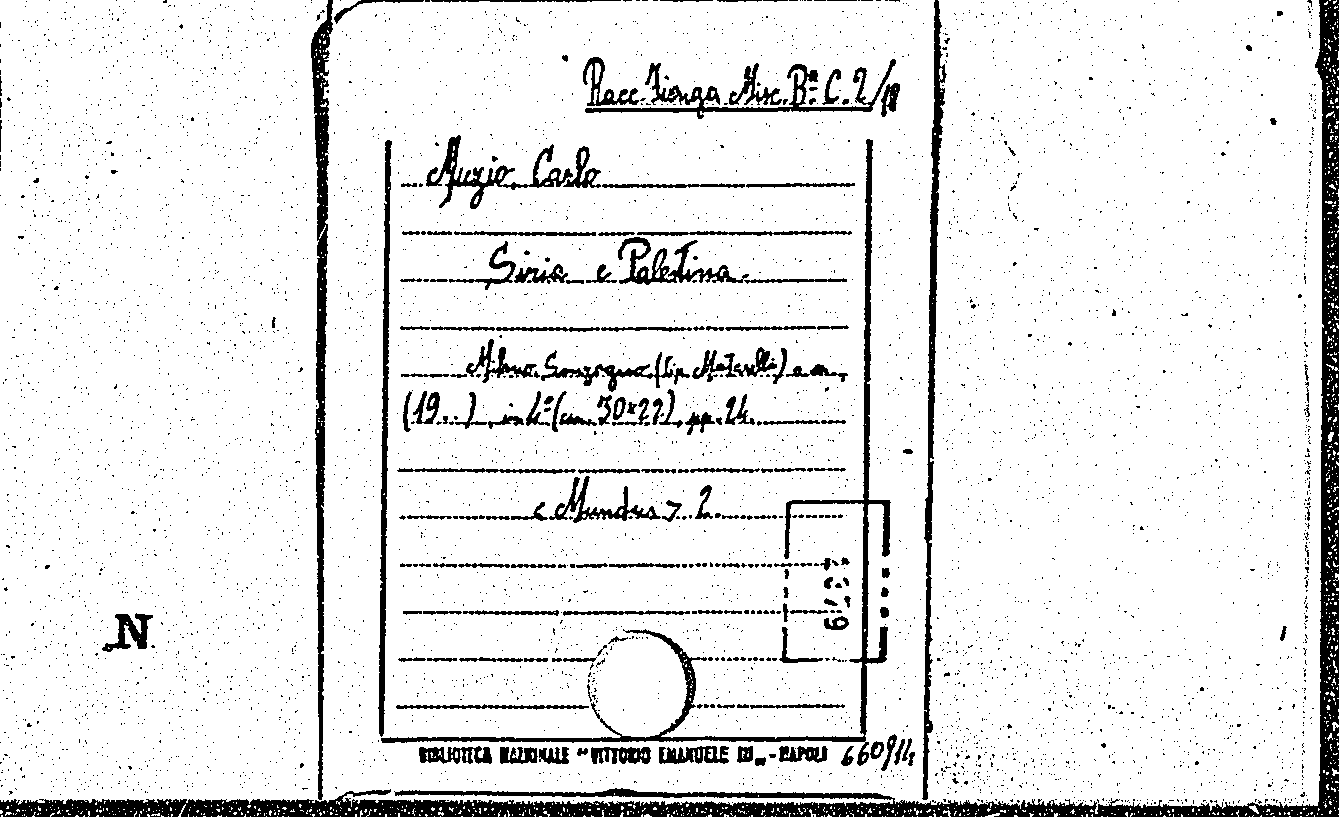 Racc. Zionga Misc. Bª C. 2/18
Muzio, Carlo
Siria e Palestina.
Milano. Sonzogno (tip. Matarelli) a m.,
(19..), in 4º (cm. 30x22), pp. 24.
< Mundus > 2.
N
BIBLIOTECA NAZIONALE "VITTORIO EMANUELE III„ - NAPOLI 660914